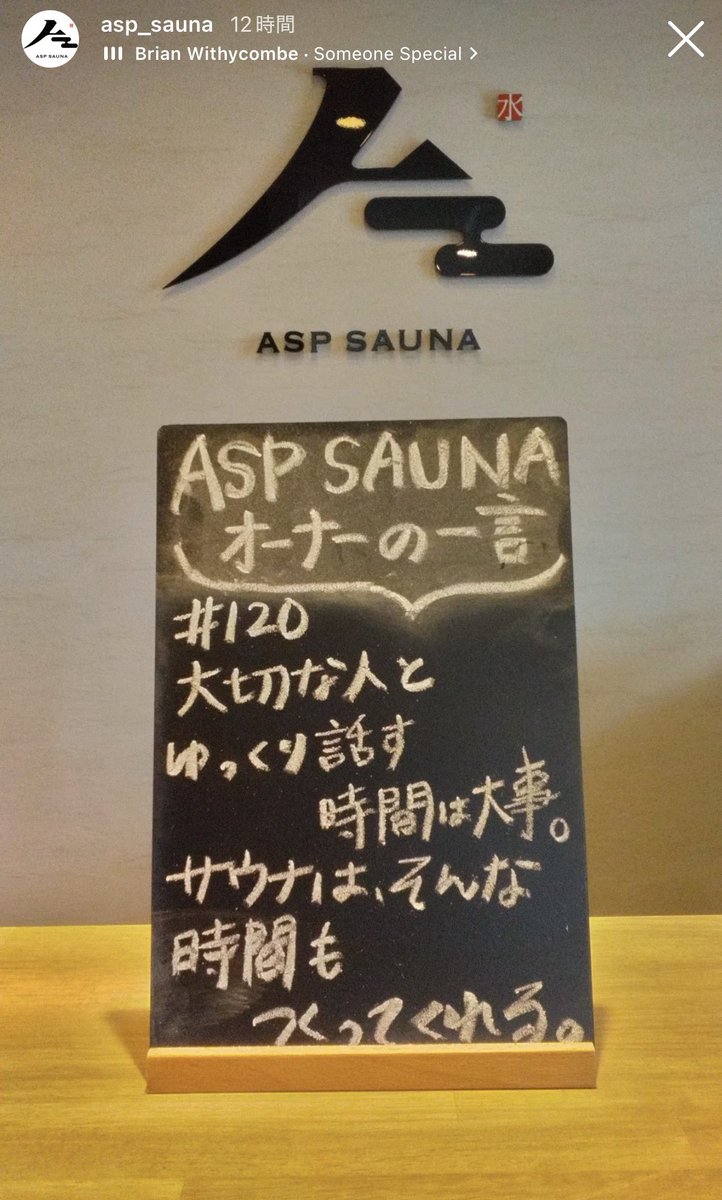 asp_sauna 12時間
Brian Withycombe · Someone Special
ASP SAUNA
水
ASP SAUNA
ASP SAUNA
オーナーの一言
#120
大切な人と
ゆっくり話す
時間は大事。
サウナは、そんな
時間も
つくってくれる。